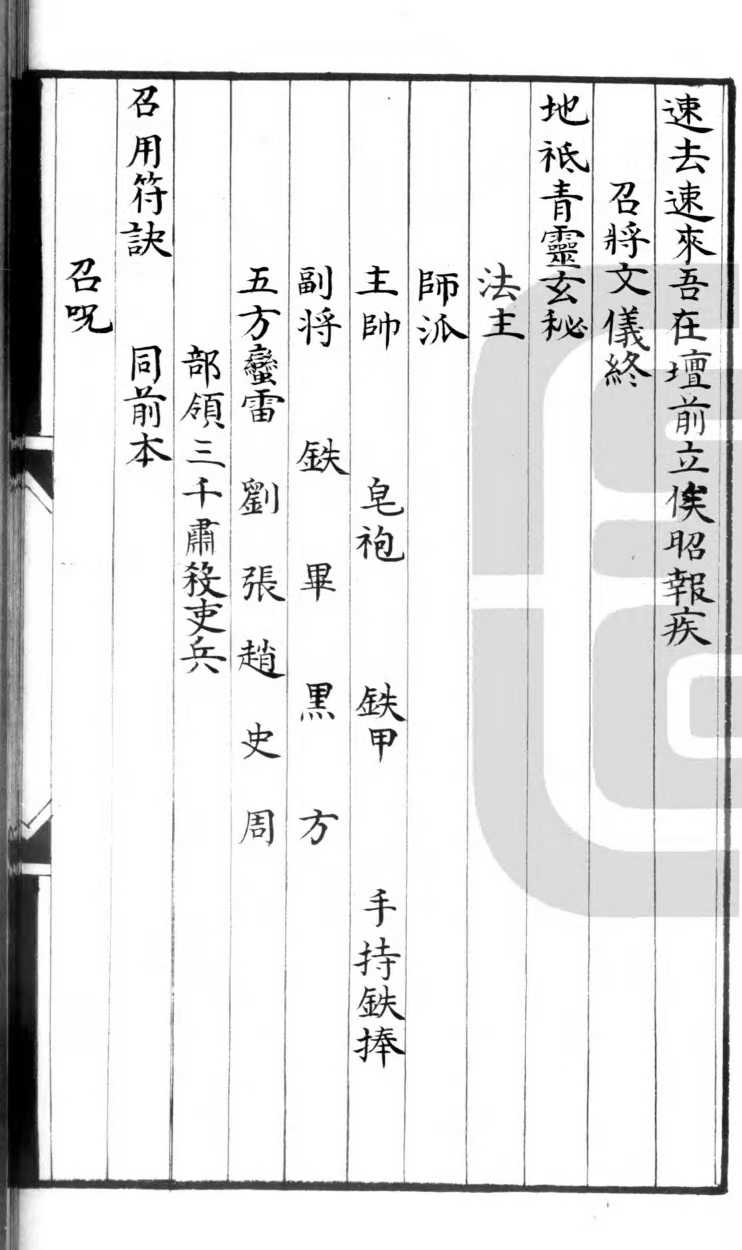 速去速來吾在壇前立俟昭報疾
召將文儀終
地祇青靈玄秘
法主
師派
主帥 皂袍 鉄甲 手持鉄捧
副将 鉄 畢 黒 方
五方蠻雷 劉 張 趙 史 周
部領三千肅殺吏兵
召用符訣 同前本
召呪